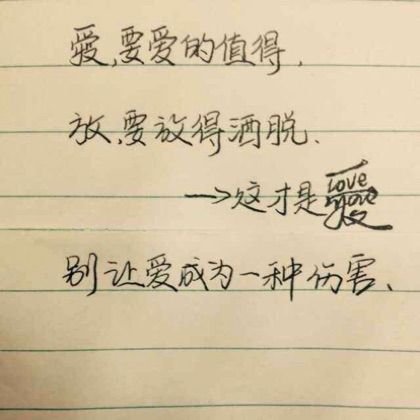 爱,要爱的值得.
放,要放得洒脱.
→这才是爱
Love
别让爱成为一种伤害、